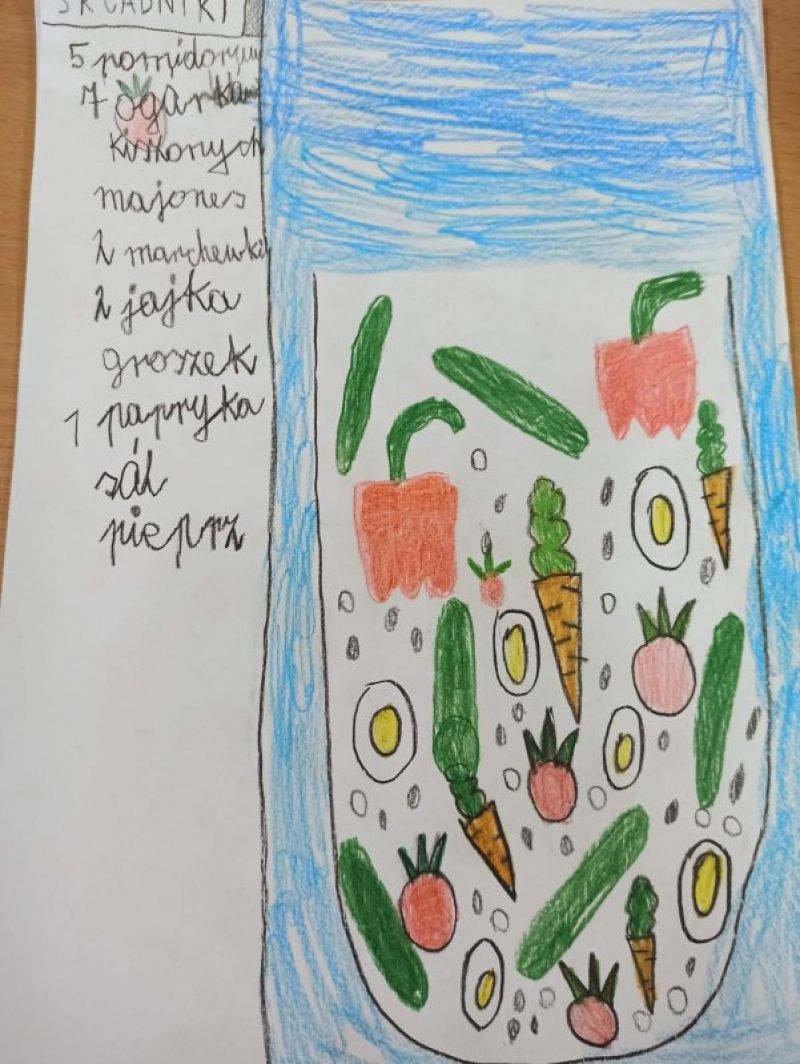 SKŁADNIKI
5 pomidorów
7
kiszonych
majones
2 marchewki
2 jajka
groszek
1 papryka
sól
pieprz